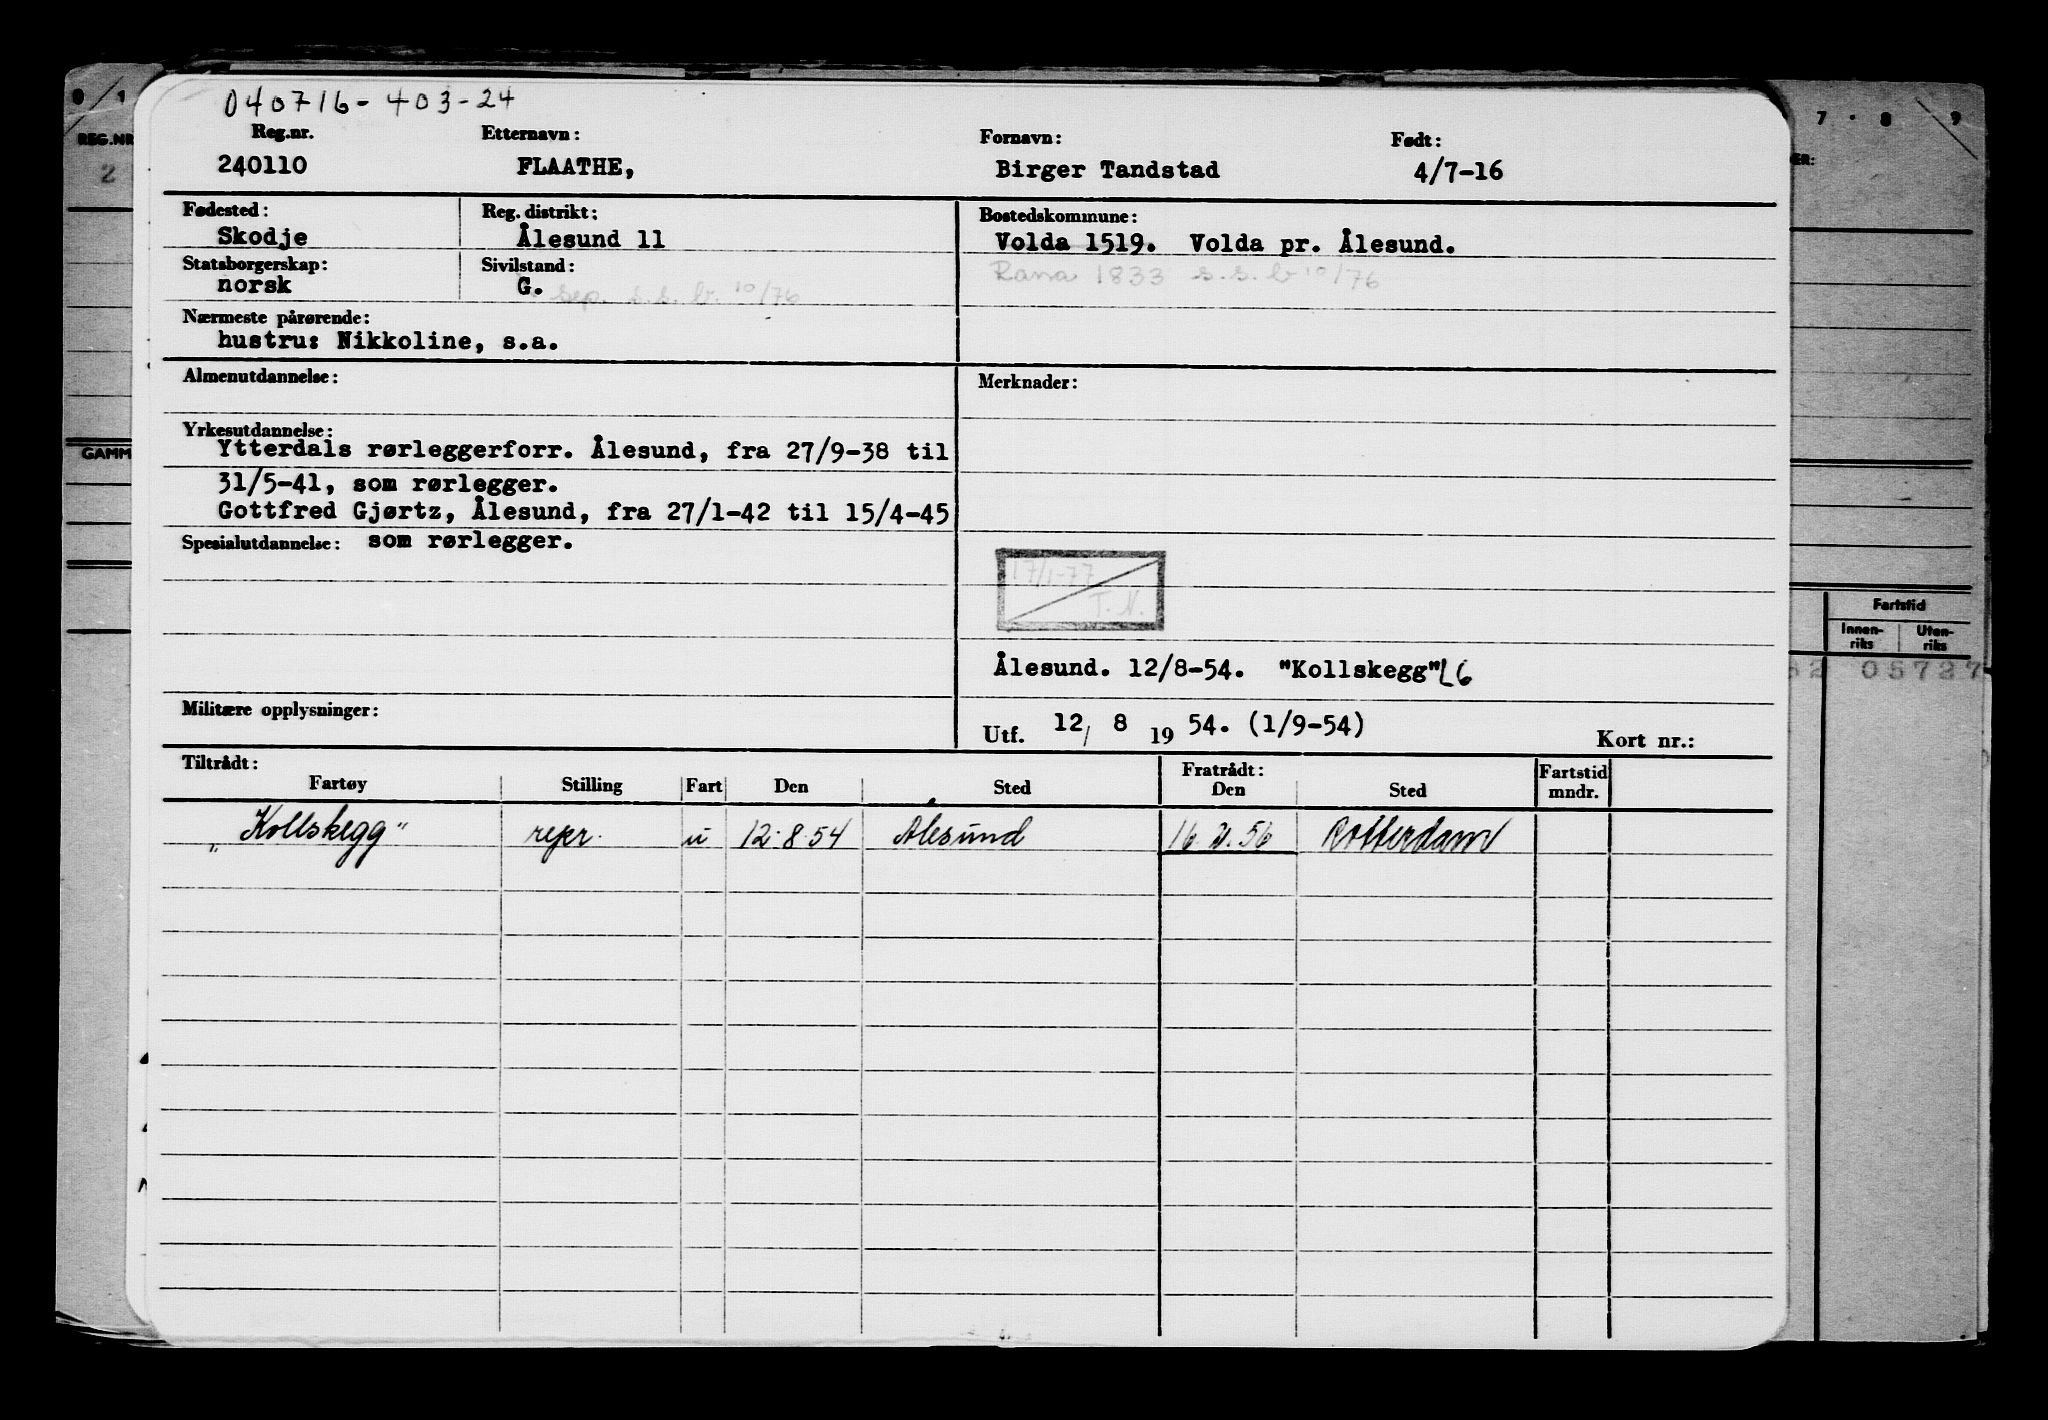 040716-403-24
Reg.nr. Etternavn: Fornavn: Født:
240110 FLAATHE, Birger Tandstad 4/7-16
Fødested: Reg. distrikt: Bostedskommune:
Skodje Ålesund 11 Volda 1519. Volda pr. Ålesund.
Statsborgerskap: Sivilstand: Rana 1833 s.s. br 10/76
norsk G. sep. s.s. br. 10/76
Nærmeste pårørende:
hustru: Nikkoline, s.a.
Almenutdannelse: Merknader:
Yrkesutdannelse:
Ytterdals rørleggerforr. Ålesund, fra 27/9-38 til
31/5-41, som rørlegger.
Gottfred Gjørtz, Ålesund, fra 27/1-42 til 15/4-45
Spesialutdannelse: som rørlegger.
17/1-77
T.N.
Ålesund. 12/8-54. "Kollskegg" L6
Militære opplysninger:
Utf. 12/ 8 19 54. (1/9-54) Kort nr.:
Tiltrådt: Fratrådt: Fartstid
Fartøy Stilling Fart Den Sted Den Sted mndr.
„Kollskegg" repr. u 12.8.54 Ålesund 56 Rotterdam
0 1
REG.NR
2
GAMM
7 8 9
ER:
Fartstid
Innen-
riks
Uten-
riks
05727